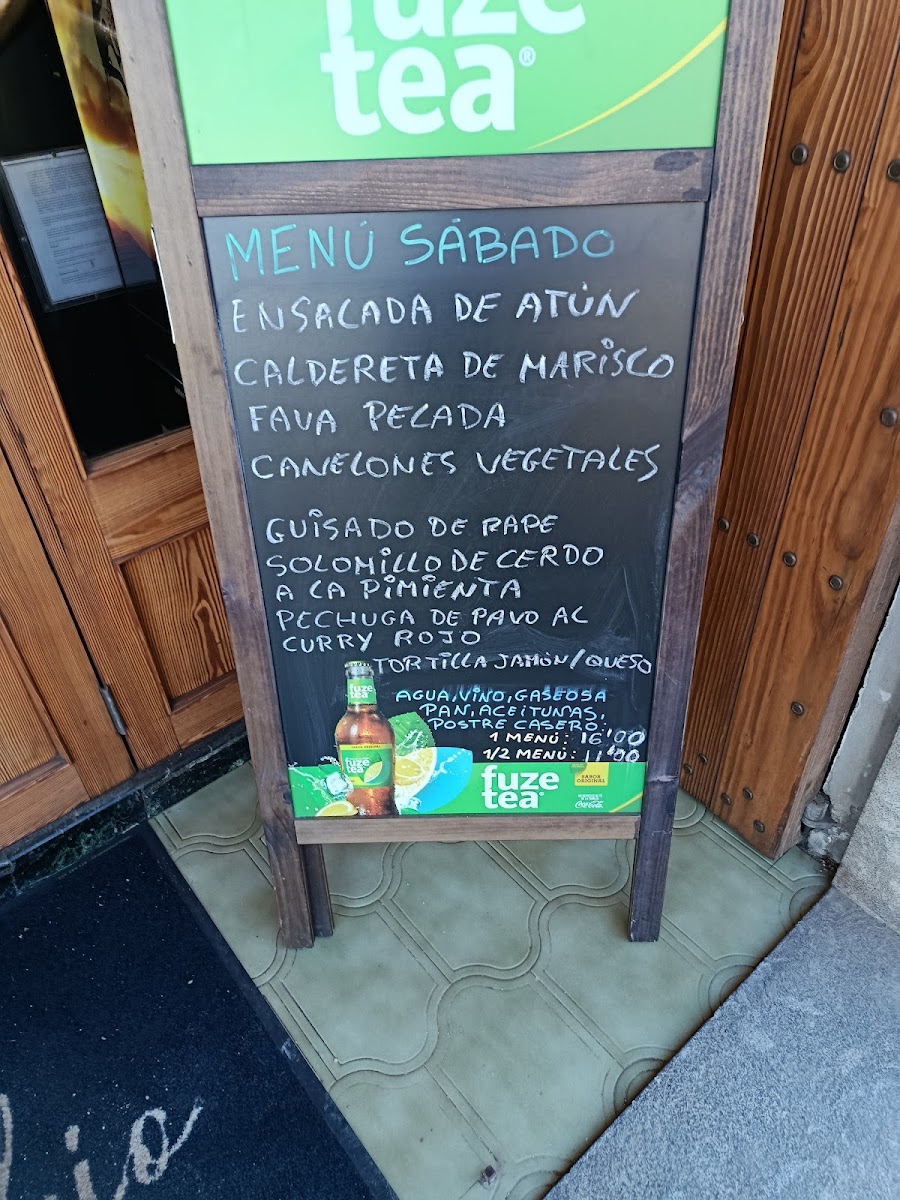 fuze
tea®
MENÚ SÁBADO
ENSALADA DE ATÚN
CALDERETA DE MARISCO
FAVA PELADA
CANELONES VEGETALES
GUISADO DE RAPE
SOLOMILLO DE CERDO
A LA PIMIENTA
PECHUGA DE PAVO AL
CURRY ROJO
TORTILLA JAMÓN/QUESO
AGUA, VINO, GASEOSA
PAN, ACEITUNAS,
POSTRE CASERO.
1 MENÚ: 16'00
1/2 MENÚ: 11'00
fuze
tea
fuze
tea
fuze
tea®
SABOR
ORIGINAL
Coca-Cola